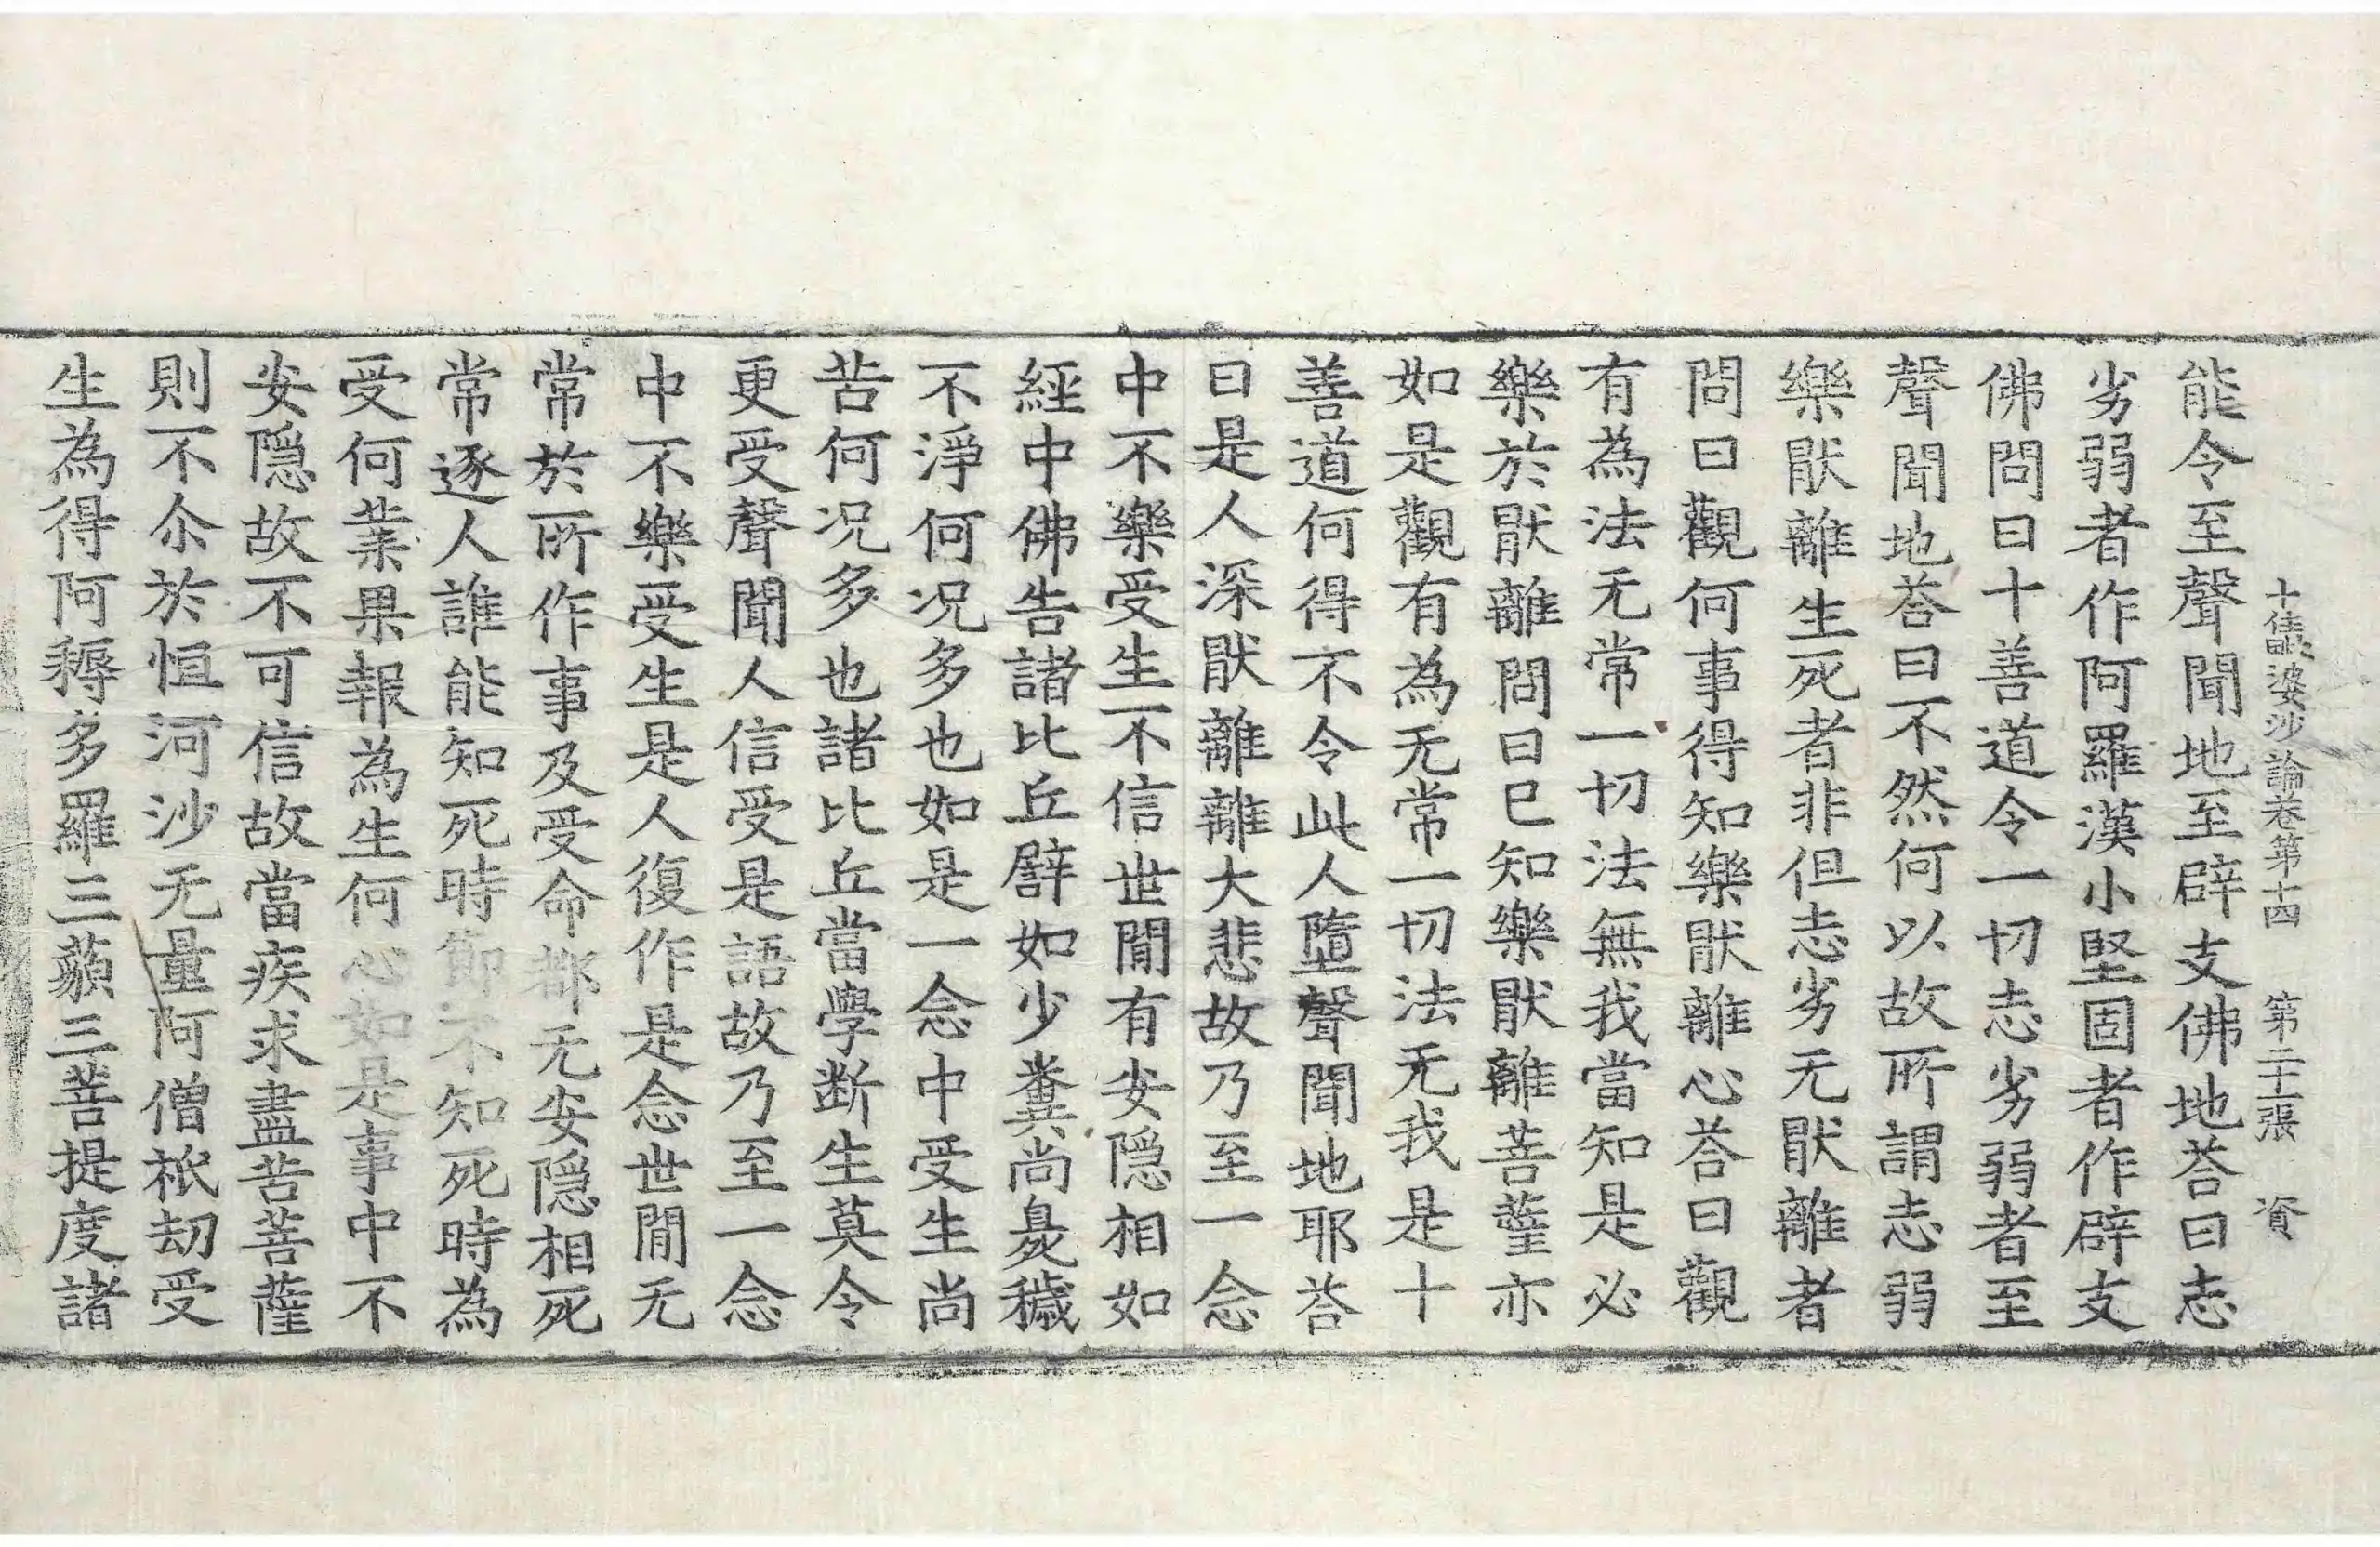 十住毗婆沙論卷第十四　第二十一張　資
能令至聲聞地至辟支佛地荅曰志
劣弱者作阿羅漢小堅固者作辟支
佛問曰十善道令一切志劣弱者至
聲聞地荅曰不然何以故所謂志弱
樂猒離生死者非但志劣无猒離者
問曰觀何事得知樂猒離心荅曰觀
有為法无常一切法無我當知是必
樂於猒離問曰已知樂猒離菩薩亦
如是觀有為无常一切法无我是十
善道何得不令此人墮聲聞地耶荅
曰是人深猒離離大悲故乃至一念
中不樂受生不信世閒有安隠相如
經中佛告諸比丘譬如少糞尚臭穢
不淨何况多也如是一念中受生尚
苦何况多也諸比丘當學断生莫令
更受聲聞人信受是語故乃至一念
中不樂受生是人復作是念世閒无
常於所作事及受命都无安隠相死
常逐人誰能知死時節不知死時為
受何業果報為生何心如是事中不
安隠故不可信故當疾求盡苦菩薩
則不尒於恒河沙无量阿僧祇劫受
生為得阿耨多羅三藐三菩提度諸